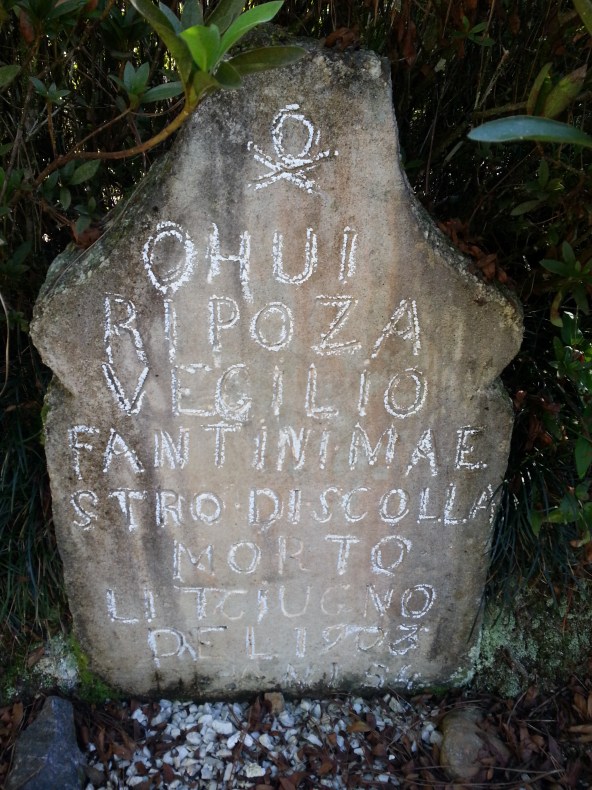 OHUI
RIPOZA
VEGILIO
FANTINIMAE
STRO.DISCOLLA
MORTO
LI7GIUGNO
DEL1903
ANI34